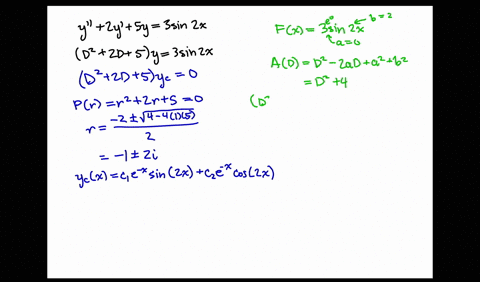 y'' + 2y' + 5y = 3sin 2x
(D² + 2D + 5)y = 3sin 2x
(D² + 2D + 5)y_c = 0
P(r) = r² + 2r + 5 = 0
r = (-2 ± √(4 - 4(1)(5))) / 2
= -1 ± 2i
y_c(x) = c₁e^{-x} sin(2x) + c₂e^{-x} cos(2x)
F(x) = 3sin 2x
b = 2
a = 0
A(D) = D² - 2aD + a² + b²
= D² + 4
(D²